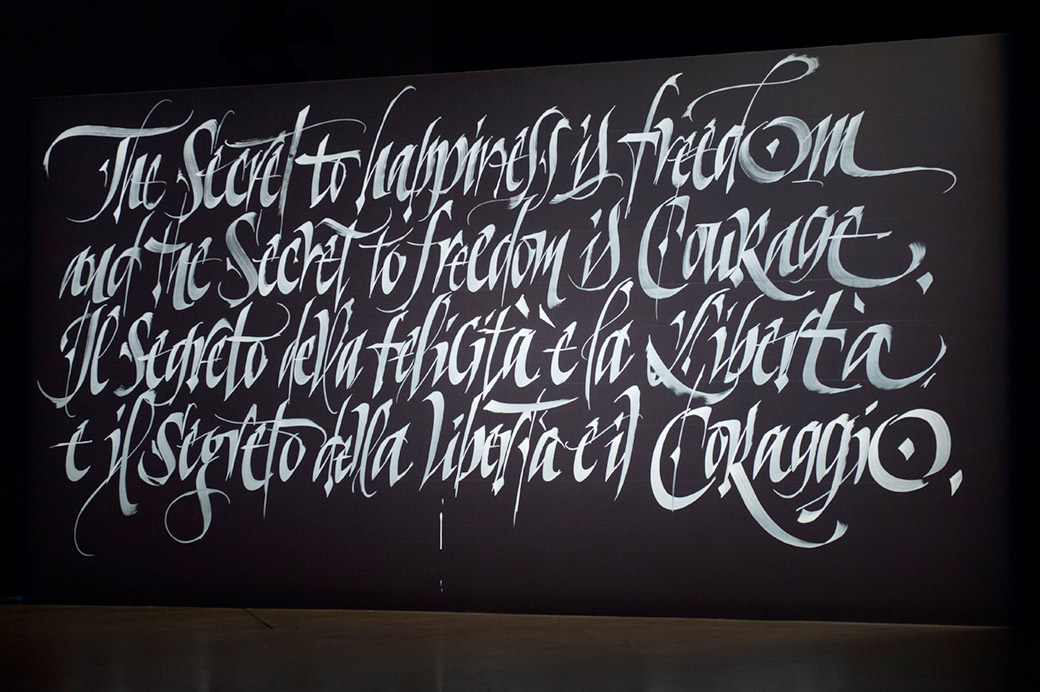 The Secret to happiness is freedom
and The Secret to freedom is Courage.
Il Segreto della felicità è la Libertà,
e il Segreto della libertà è il Coraggio.